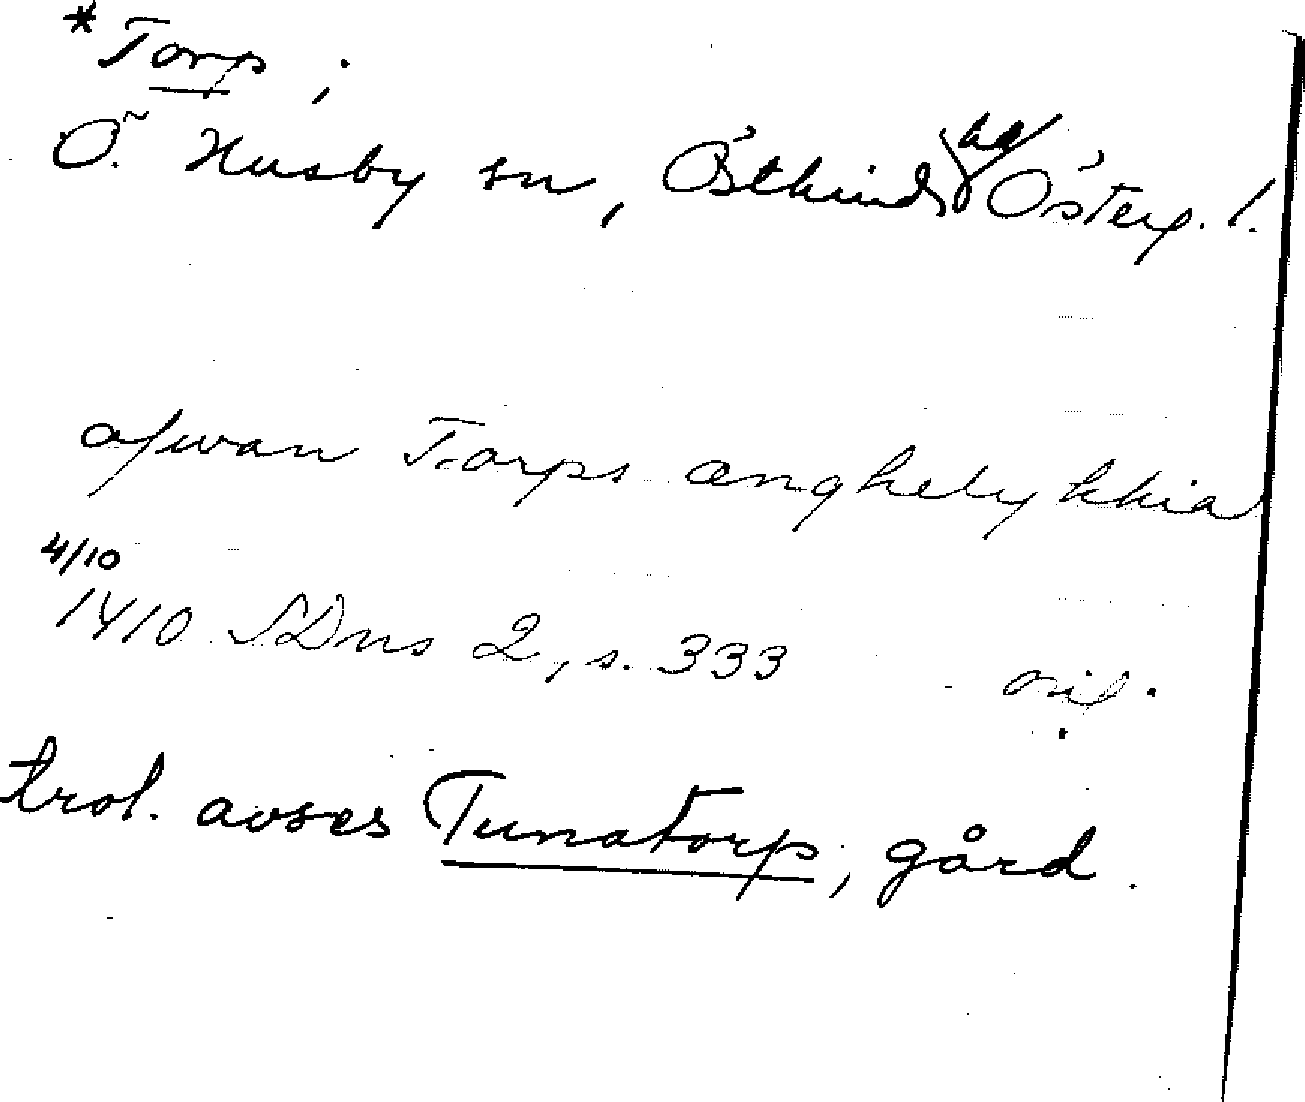 *Torp ;
Ö. Husby sn, Östkinds hd Österg. l.
afwan Torps ænghelykkia
4/10
1410 SDns 2, s. 333 orig.
trol. avses Tunatorp, gård.